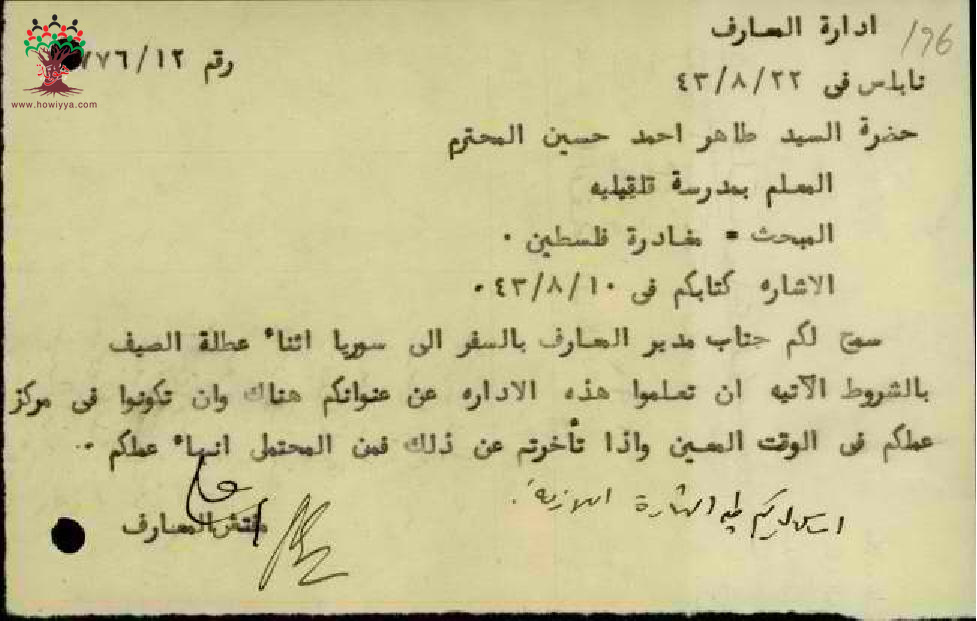 ادارة المعارف
196
رقم ٧٧٦/١٢
نابلس فى ٤٣/٨/٢٢
www.howiyya.com
حضرة السيد طاهر احمد حسين المحترم
المعلم بمدرسة قلقيليه
المبحث = مغادرة فلسطين .
الاشاره كتابكم فى ٤٣/٨/١٠ .
سمح لكم جناب مدير المعارف بالسفر الى سوريا اثناء عطلة الصيف
بالشروط الآتيه ان تعلموا هذه الاداره عن عنوانكم هناك وان تكونوا فى مركز
عملكم فى الوقت المعين واذا تأخرتم عن ذلك فمن المحتمل انهاء عملكم .
اللازمة.
مفتش المعارف